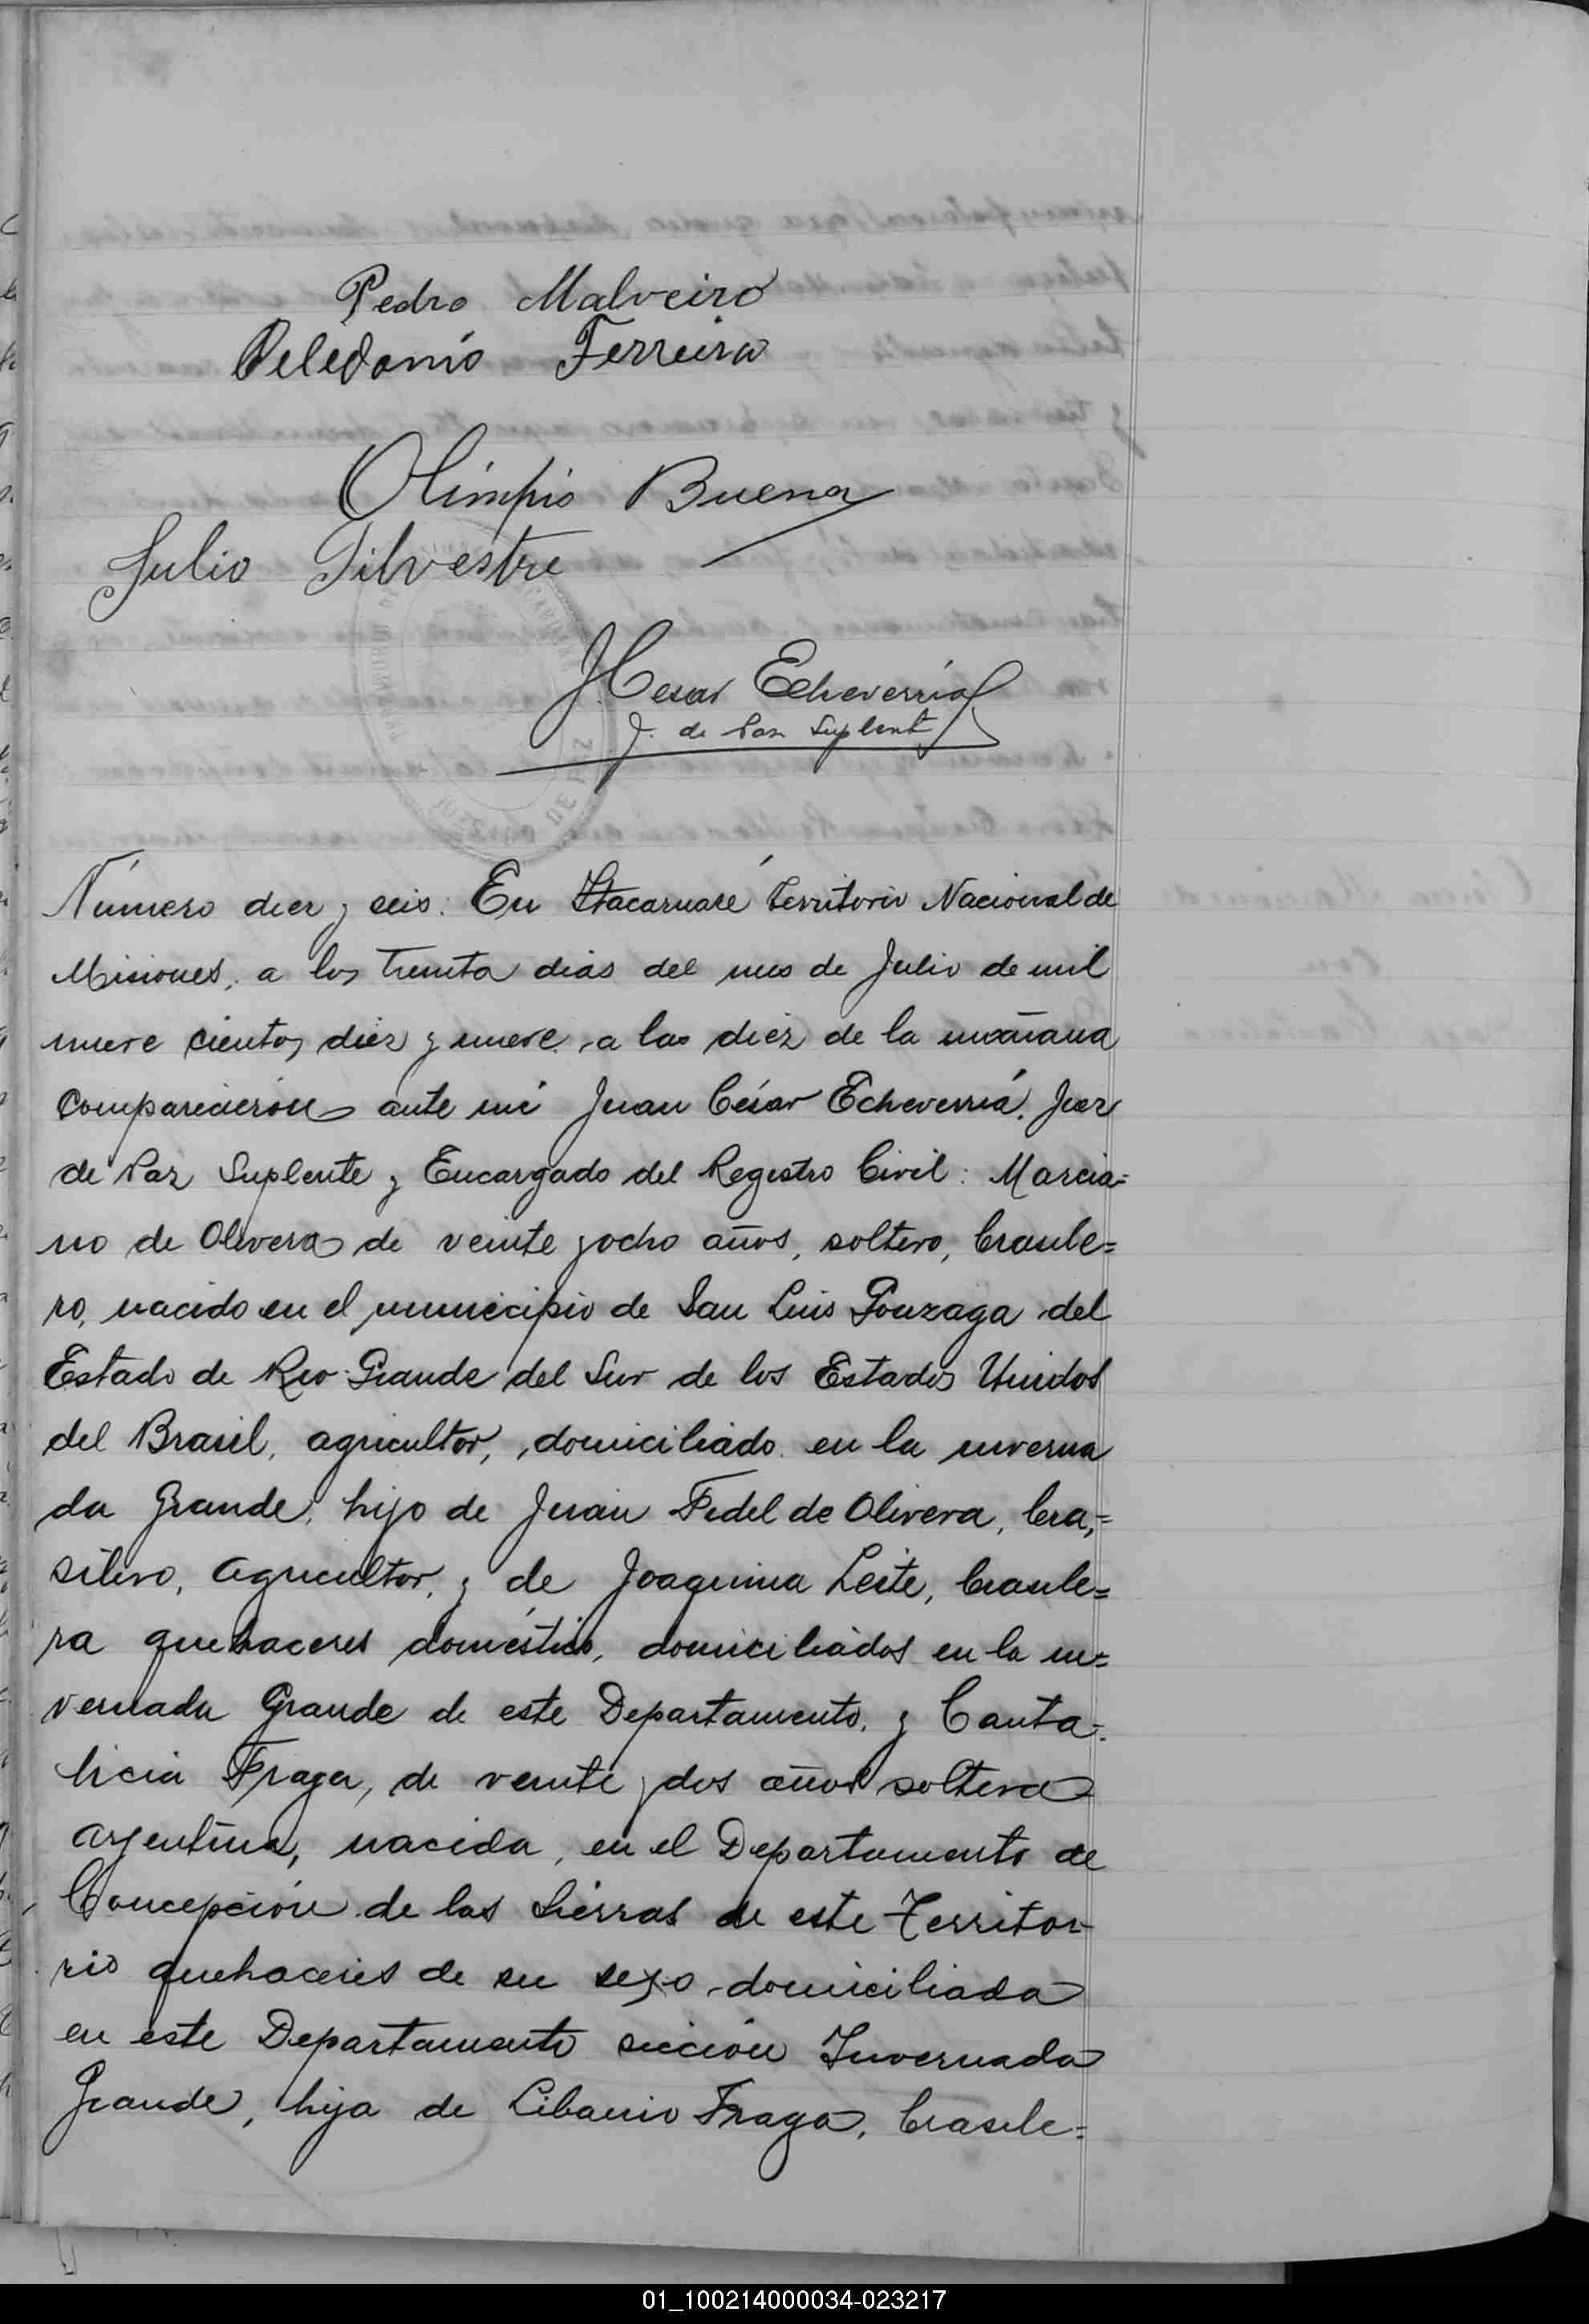 Pedro Malveiro
Celedonio Ferreira
Olimpio Buena
Julio Silvestre
J. Cesar Echeverría
J. de Paz Suplente
JUZGADO DE PAZ
Número diez y seis: En Itacaruaré territorio Nacional de
Misiones, a los treinta dias del mes de Julio de mil
nueve cientos diez y nueve, a las diez de la mañana
comparecieron ante mi Juan César Echeverría, Juez
de Paz Suplente y Encargado del Registro Civil: Marcia=
no de Olivera de veinte y ocho años, soltero, brasile=
ro, nacido en el municipio de San Luis Gonzaga del
Estado de Rio Grande del Sur de los Estados Unidos
del Brasil, agricultor, domiciliado en la inverna
da Grande, hijo de Juan Fidel de Olivera, bra=
silero, agricultor, y de Joaquina Leite, brasile=
ra quehaceres domésticos, domiciliados en la in=
vernada Grande de este Departamento, y Canta=
licia Fraga, de veinte y dos años soltera
argentina, nacida, en el Departamento de
Concepción de las Sierras de este Territor
rio quehaceres de su sexo, domiciliada
en este Departamento sección Invernada
Grande, hija de Libanio Fraga, brasile=
01_100214000034-023217